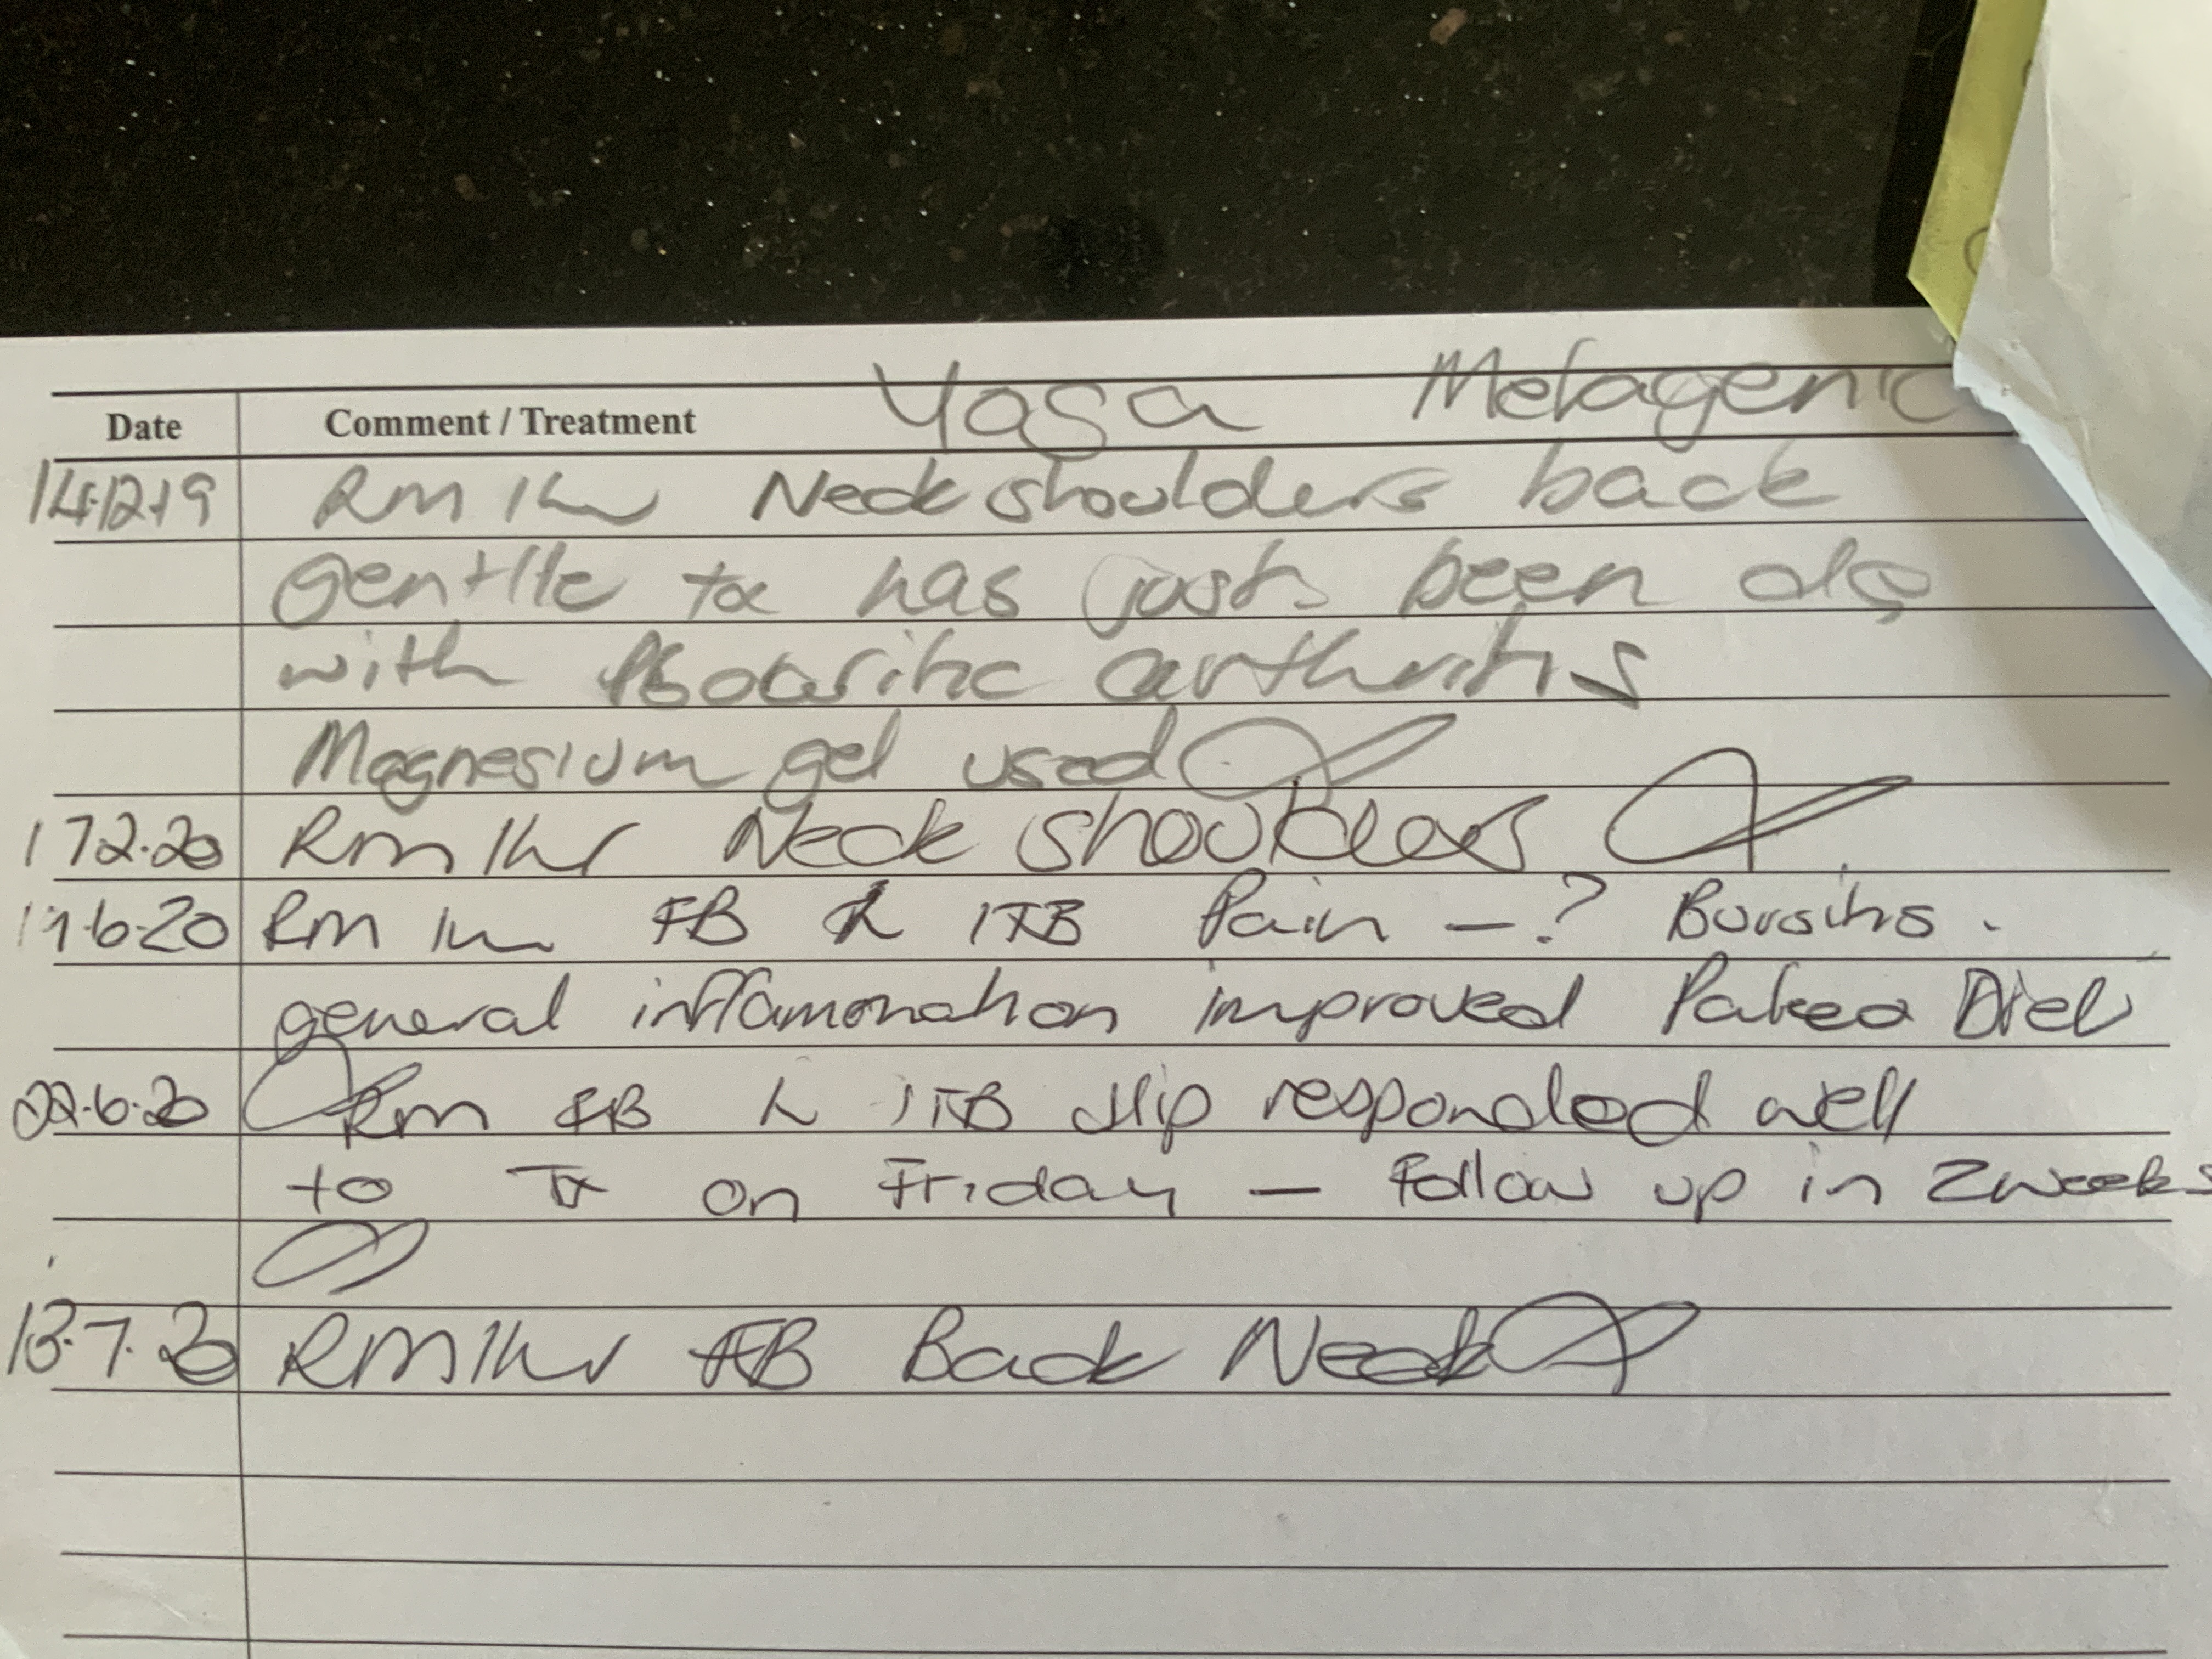 Date Comment / Treatment Yoga Metagenic
14.12.19 RM 1hr Neck shoulders back
gentle tx has just been
with Psoaritic arthritis
Magnesium gel used
17.2.20 RM 1hr Neck shoulders
19.6.20 RM 1hr FB L ITB Pain - ? Bursitis.
general inflammation improved Paleo Diet
22.6.20 RM FB L ITB Hip responded well
to Tx on Friday - Follow up in 2 weeks
13.7.20 RM 1hr FB Back Neck